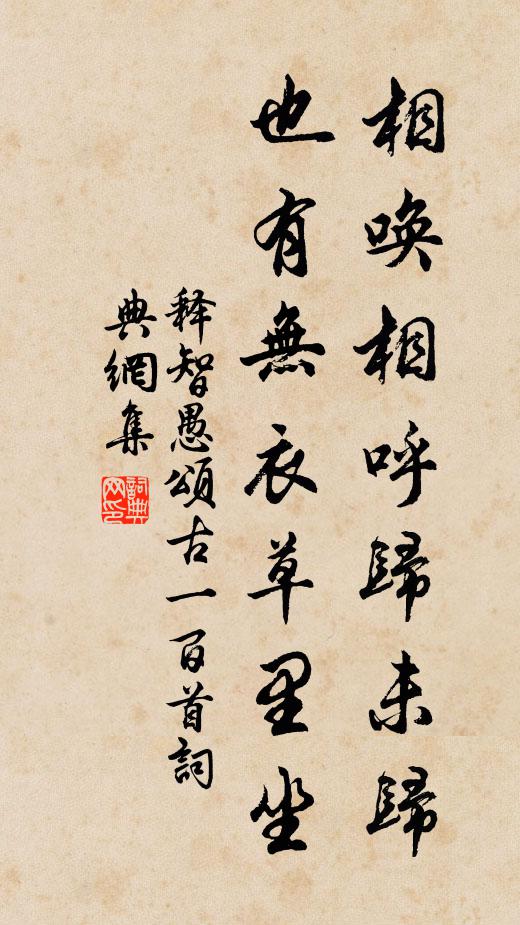 相唤相呼歸未歸
也有無衣草里坐
释智愚頌古一百首詞
典網集
詞典网印